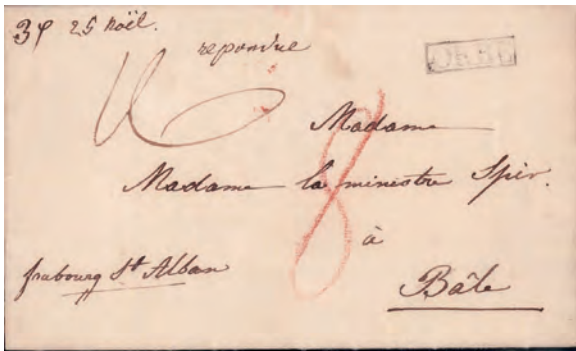 39 25 Noël.
repondue
ORBE
Madame
Madame la ministre Spir.
8
à
faubourg St Alban
Bâle